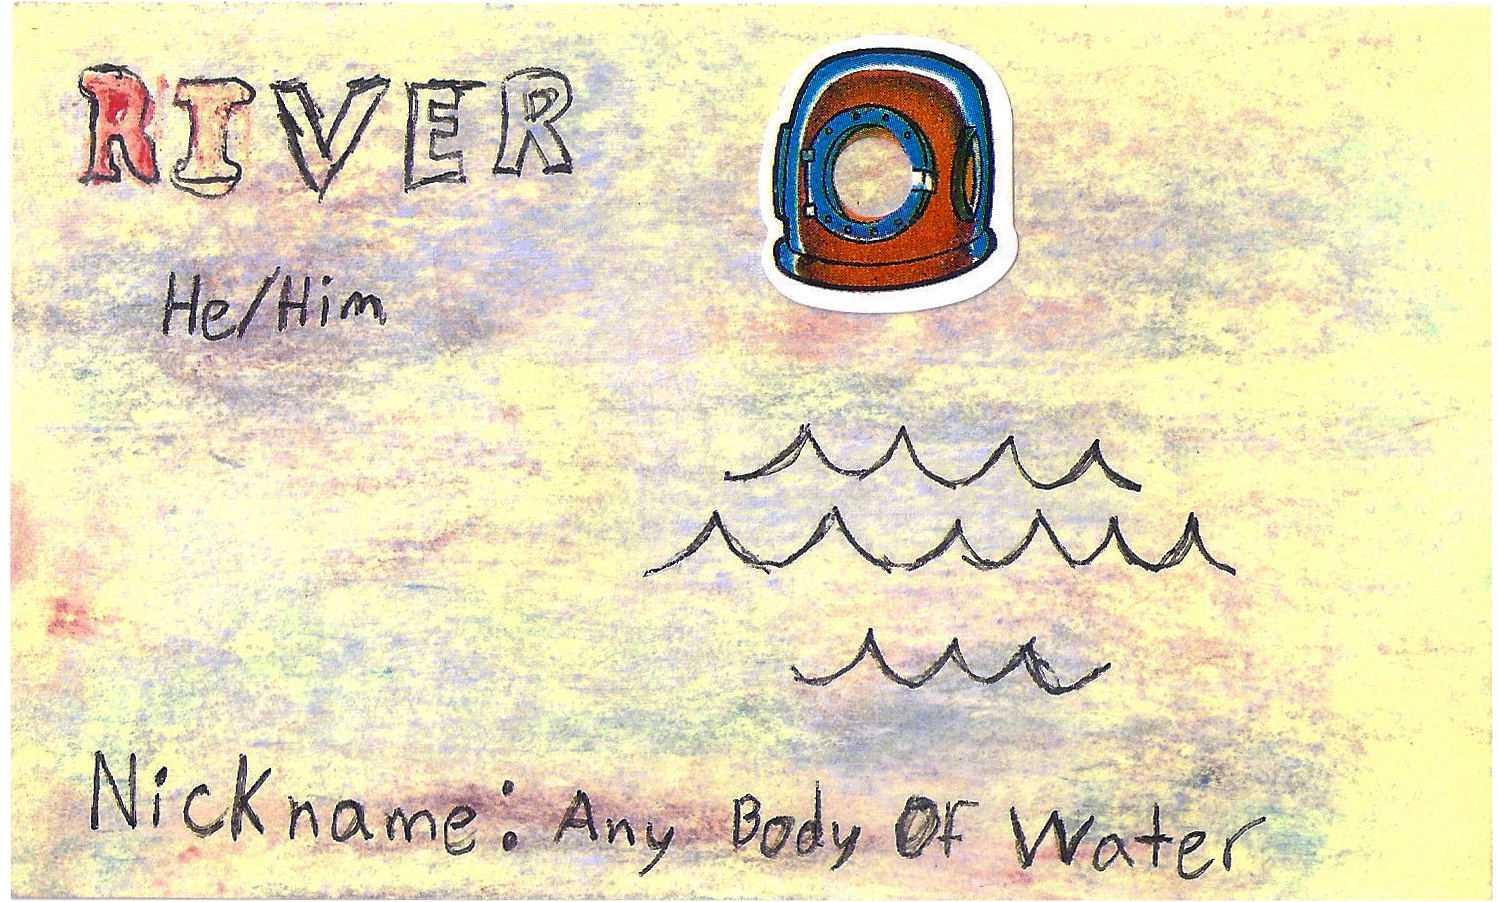 RIVER
He/Him
Nickname: Any Body Of Water